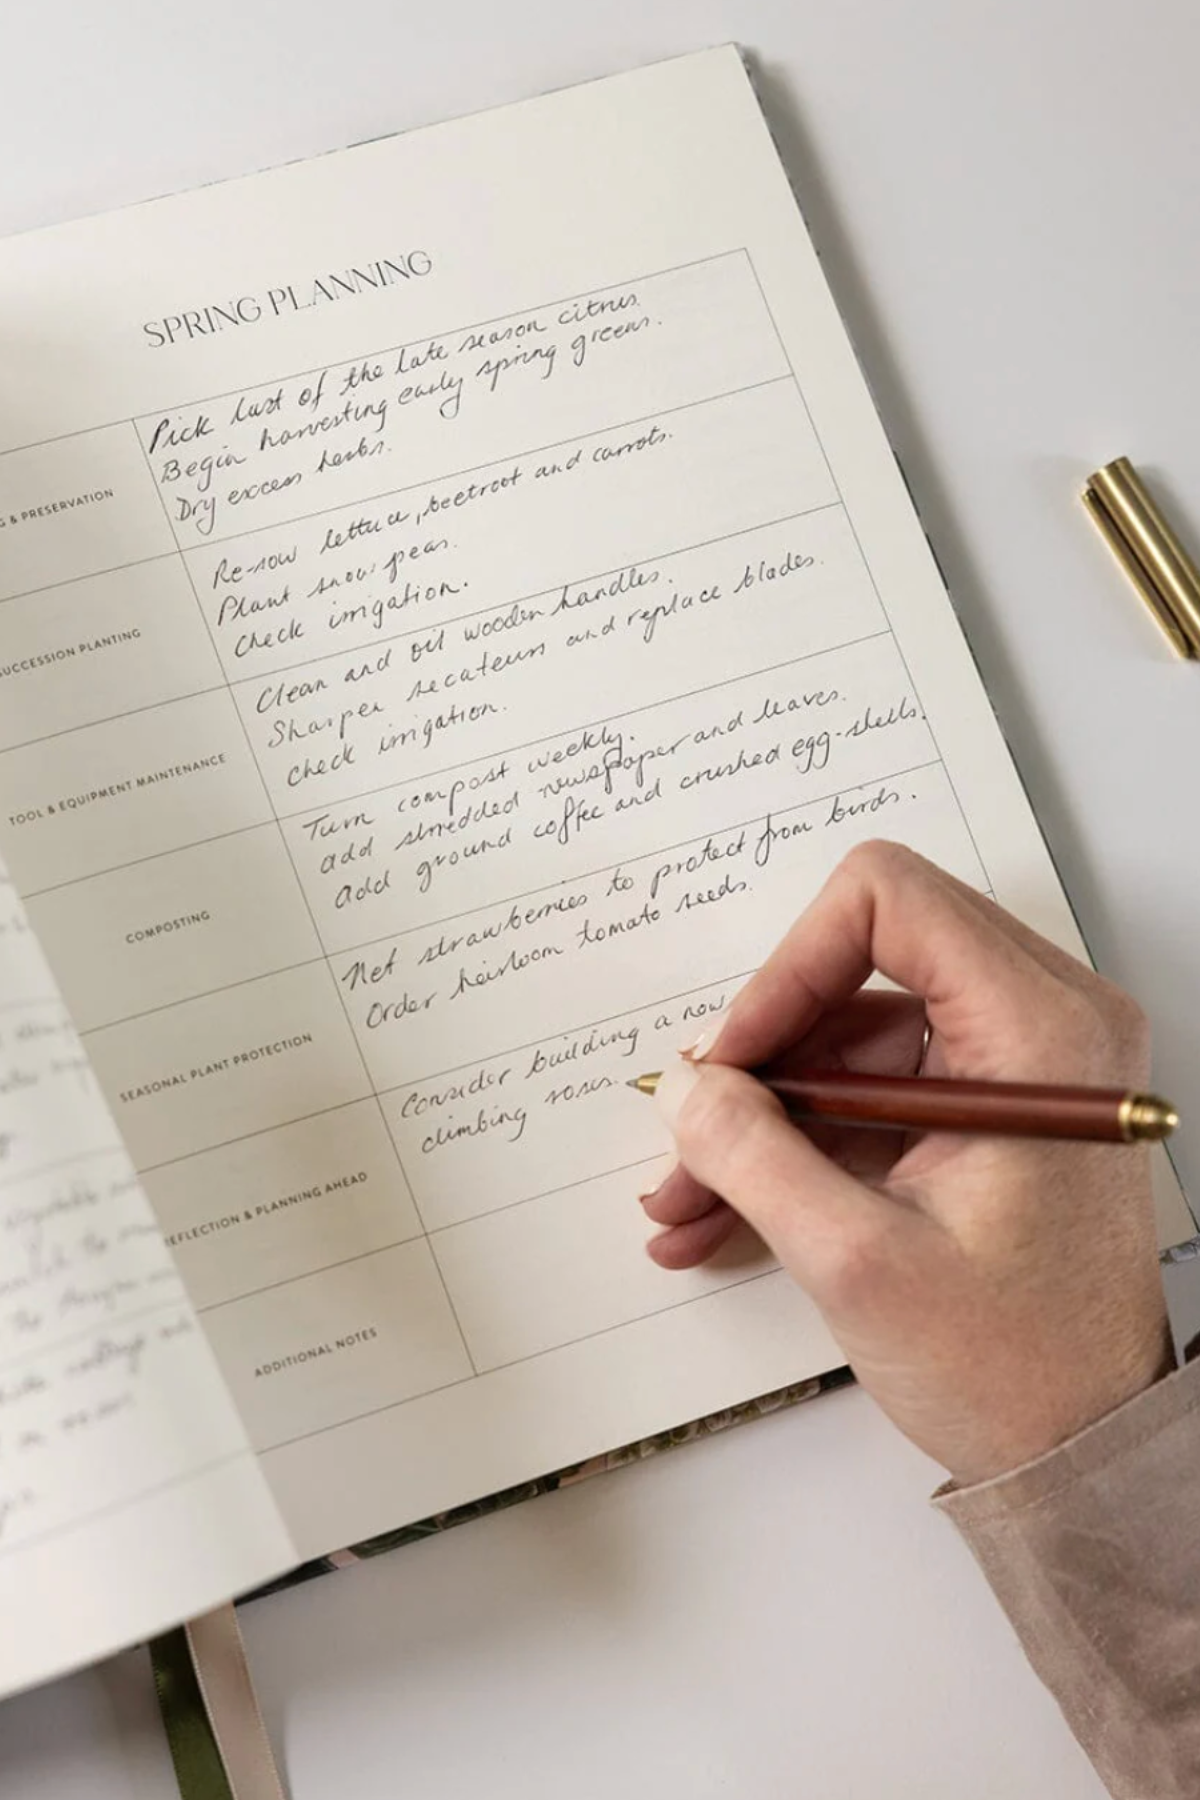 SPRING PLANNING
G & PRESERVATION
Pick last of the late season citrus.
Begin harvesting early spring greens.
Dry excess herbs.
SUCCESSION PLANTING
Re-sow lettuce, beetroot and carrots.
Plant snow peas.
Check irrigation.
TOOL & EQUIPMENT MAINTENANCE
Clean and oil wooden handles.
Sharpen secateurs and replace blades.
Check irrigation.
COMPOSTING
Turn compost weekly.
Add shredded newspaper and leaves.
Add ground coffee and crushed egg-shells.
SEASONAL PLANT PROTECTION
Net strawberries to protect from birds.
Order heirloom tomato seeds.
REFLECTION & PLANNING AHEAD
Consider building a
climbing roses.
ADDITIONAL NOTES